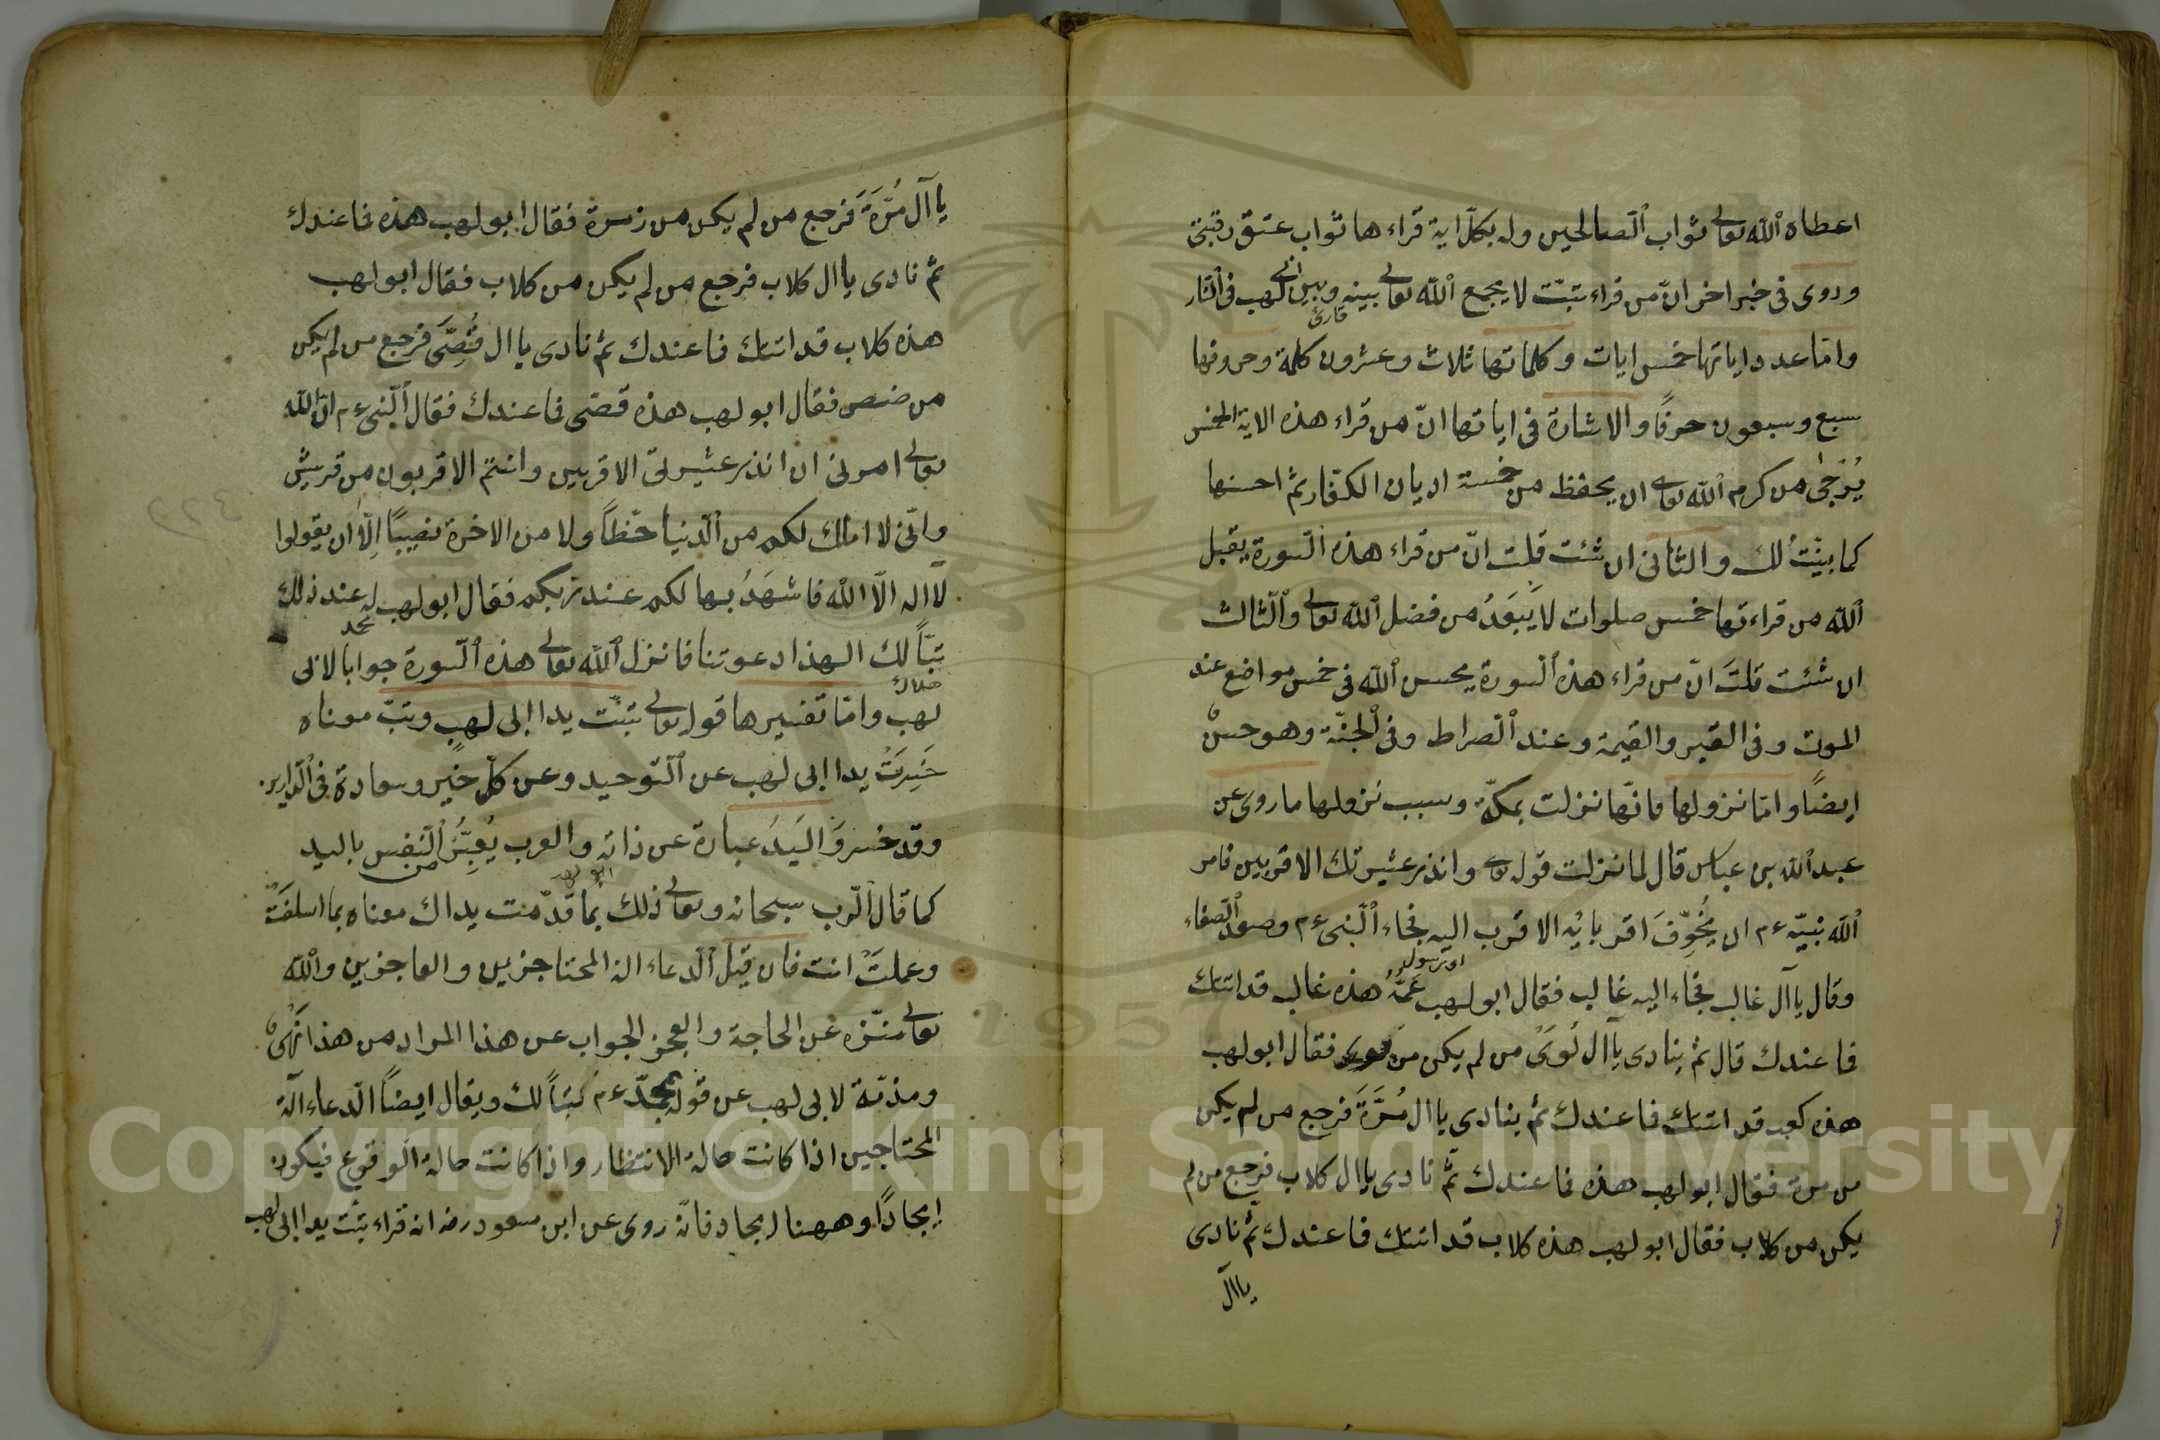 اعطاه الله تعالى ثواب الصالحين وله بكل اية قراءها ثواب عتق رقبة
وروى فى خبر اخر انّ من قراء تبّت لا يجمع الله تعالى بينه وبين ابى لهب فى النار
قارئ
وامّا عدد اياتها خمس ايات وكلماتها ثلاث وعشرون كلمة وحروفها
سبع وسبعون حرفًا والاشارة فى اياتها انّ من قراء هذه الاية الخمس
يُرَجّى من كرم الله تعالى ان يحفظ من خمسة اديان الكفار ثم احسنها
كما بيّنت لك والثانى ان شئت قلت انّ من قراء هذه السورة يقبل
الله من قراءتها خمس صلوات لا يَبعَدُ من فضل الله تعالى والثالث
ان شئت قلتَ انّ من قراء هذه السورة يحسن الله فى خمس مواضع عند
الموت وفى القبر والقيمة وعند الصراط وفى الجنّة وهو حسنٌ
ايضًا وامّا نزولها فانّها نزلت بمكّة وسبب نزولها ما روى عن
عبد الله بن عباس قال لما نزلت قوله تعالى وانذر عشيرتك الاقربين فامر
الله نبيّه ءم ان يُخَوِّفَ اقربائِه الاقرب اليه فجاء النبى ءم وصعد الصفاء
وقال يا آل غالب فجاء اليه غالب فقال ابو لهب عَمُّهُ هذه غالب قد اتتك
فما عندك قال ثم ينادى يا آل لُوَىّ من لم يكن من لوى فقال ابو لهب
هذه كعب قد اتتك فما عندك ثم ينادى يا ال مُرَّةَ فرجع من لم يكن
من مرة فقال ابو لهب هذه فما عندك ثمّ نادى يا ال كلاب فرجع من لم
يكن من كلاب فقال ابو لهب هذه كلاب قد اتتك فما عندك ثم نادى
يا ال
يا آل مُرَّةَ فرجع من لم يكن من زمرة فقال ابو لهب هذه فما عندك
ثم نادى يا ال كلاب فرجع من لم يكن من كلاب فقال ابو لهب
هذه كلاب قد اتتك فما عندك ثم نادى يا ال قُصَىّ فرجع من لم يكن
من فقال ابو لهب هذه قصّى فما عندك فقال النبى ءم انّ الله
تعالى امرنى ان انذر عشيرتى الاقربين وانتم الاقربون من قريش
وانّى لا املك لكم من الدنيا حظاً ولا من الاخرة نصيبًا اِلّا ان يقولوا
لا اله الّا الله فاشهَدُ بها لكم عند ربكم فقال ابو لهب له عند ذلك
محمد
تبّاً لك الهذا دعوتنا فانزل الله تعالى هذه السورة جوابا لابى
هلاك
لهب وامّا تفسيرها قوله تعالى تبّت يدا ابى لهب وتبّ معناه
خَسِرَتْ يدا ابى لهب عن التوحيد وعن كلّ خير وسعادة فى الدارين
وقد خسر وَاليَدُ عبارة عن ذاته والعرب يُعبِّرُ النفس باليد
كما قال الرّب سبحانه وتعالى ذلك بما قدّمت يداك معناه بما اسلفَتْ
وعملتْ انت فان قيل الدعاء الة المحتاجين والعاجزين والله
تعالى منزّه عن الحاجة والعجز الجواب عن هذا المراد من هذا
ومذمّة لابى لهب عن قوله لمحمّد ءم تبّاً لك ويقال ايضاً الدعاء آلة
المحتاجين اذا كانت حالة الانتظار واذا كانت حالة الوقوع فيكون
ايجادًا وههنا ايجاد فانّه روى عن ابن مسعود رضه انه قراء تبّت يدا ابى لهب
Copyright © King Saud University
1957